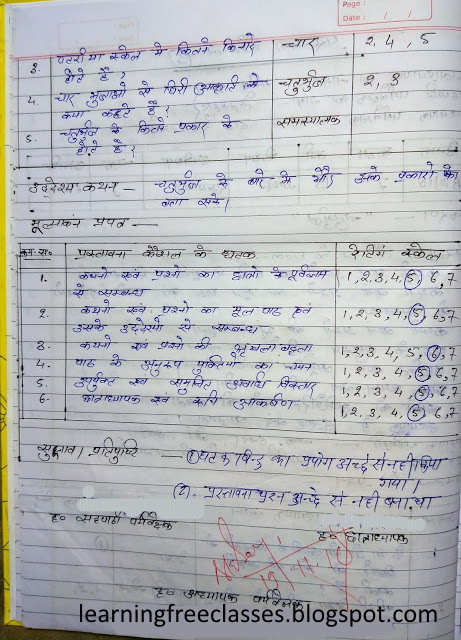 Page :
Date : / /
3. पटरी या स्केल में कितने किनारे होते है? चार 2, 4, 5
4. चार भुजाओं से घिरी आकृति को क्या कहते है? चतुर्भुज 2, 3
5. चतुर्भुज के कितने प्रकार के होते है? समस्यात्मक
उद्देश्य कथन — चतुर्भुज के बारे में और उसके प्रकारों को बता सके।
मूल्यांकन प्रपत्र —
क्र.सं. प्रस्तावना कौशल के घटक रेटिंग स्केल
1. कथनों एवं प्रश्नों का छात्रों के पूर्वज्ञान से सम्बन्ध 1, 2, 3, 4, 5, 6, 7
2. कथनों एवं प्रश्नों का मूल पाठ एवं उसके उद्देश्यों से सम्बन्ध 1, 2, 3, 4, 5, 6, 7
3. कथनों एवं प्रश्नों की श्रृंखलाबद्धता 1, 2, 3, 4, 5, 6, 7
4. पाठ के अनुरूप युक्तियों का चयन 1, 2, 3, 4, 5, 6, 7
5. उपयुक्त एवं समुचित अवधि विस्तार 1, 2, 3, 4, 5, 6, 7
6- छात्राध्यापक एवं रुचि आकर्षण 1, 2, 3, 4, 5, 6, 7
सुझाव। प्रतिपुष्टि — (1) का प्रयोग अच्छे से नहीं किया गया।
(2). प्रस्तावना प्रश्न अच्छे से नहीं बना था
ह० सहपाठी पर्यवेक्षक
ह० छात्राध्यापक
19.11.18
ह० अध्यापक पर्यवेक्षक
learningfreeclasses.blogspot.com